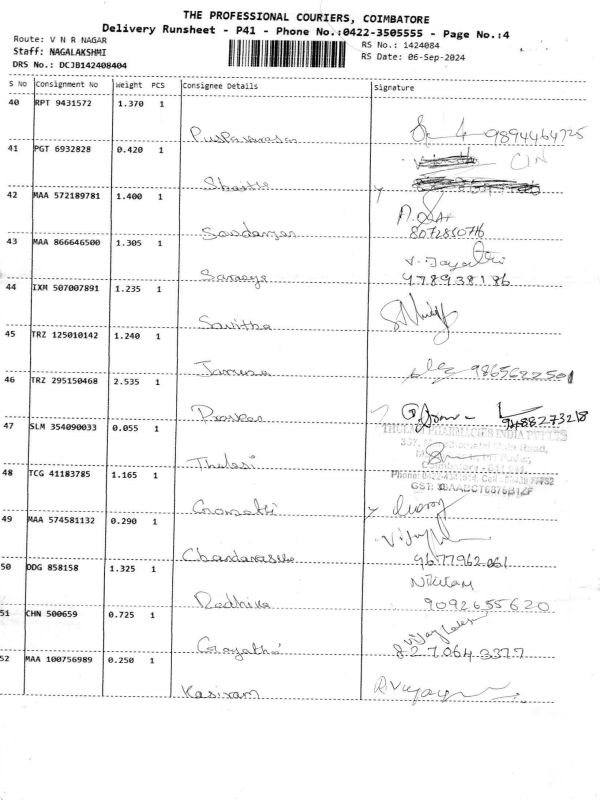 THE PROFESSIONAL COURIERS, COIMBATORE
Delivery Runsheet - P41 - Phone No.:0422-3505555 - Page No.:4
Route: V N R NAGAR
RS No.: 1424084
Staff: NAGALAKSHMI
RS Date: 06-Sep-2024
DRS No.: DCJB142408404
S No Consignment No Weight PCS Consignee Details Signature
40 RPT 9431572 1.370 1
9894464725
41 PGT 6932828 0.420 1
CIN
42 MAA 572189781 1.400 1
8072850716
43 MAA 866646500 1.305 1
V. Jayanthi
Sameya
978938186
44 IXM 507007891 1.235 1
Savitha
45 TRZ 125010142 1.240 1
Jamuna 9865622501
46 TRZ 295150468 2.535 1
9488273218
47 SLM 354090033 0.055 1
INDIA PVT LTD
Road,
Thulasi
48 TCG 41183785 1.165 1
Gomathi
49 MAA 574581132 0.290 1
Chandarasekar
9677962061
50 DDG 858158 1.325 1
Radhika
9092655620
51 CHN 500659 0.725 1
Gayathri
8270643377
52 MAA 100756989 0.250 1
Kasiram